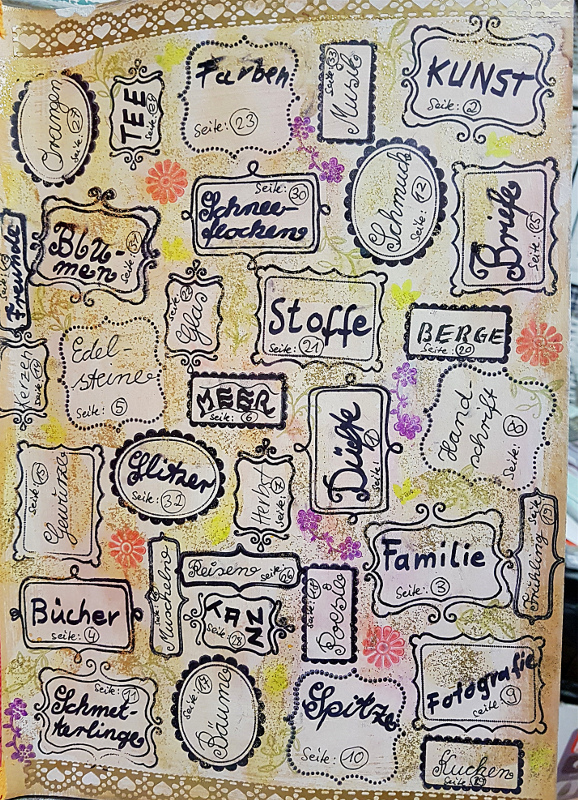 Orangen
Seite: 27
TEE
Seite:
Farben
Seite: 23
Musik
Seite: 33
KUNST
Seite: 2
Schmuck
Seite: 12
Seite: 30
Schnee-
flocken
Briefe
Seite: 25
Freunde
Seite:
Blu-
men
Seite:
Glas
Seite:
Stoffe
Seite: 21
BERGE
Seite: 20
Kerzen
Seite:
Edel-
steine
Seite: 5
MEER
Seite: 6
Düfte
Seite: 1
Hand-
schrift
Seite: 8
Gewürze
Seite:
Glitzer
Seite: 32
Herbst
Seite: 7
Familie
Seite: 3
Frühling
Seite:
Bücher
Seite: 4
Muscheln
Seite:
Reisen
Seite: 26
TANZ
Seite:
Poesie
Seite:
Fotografie
Seite: 9
Seite: 11
Schmet-
terlinge
Bäume
Seite:
Spitze
Seite: 10
Kuchen
Seite: